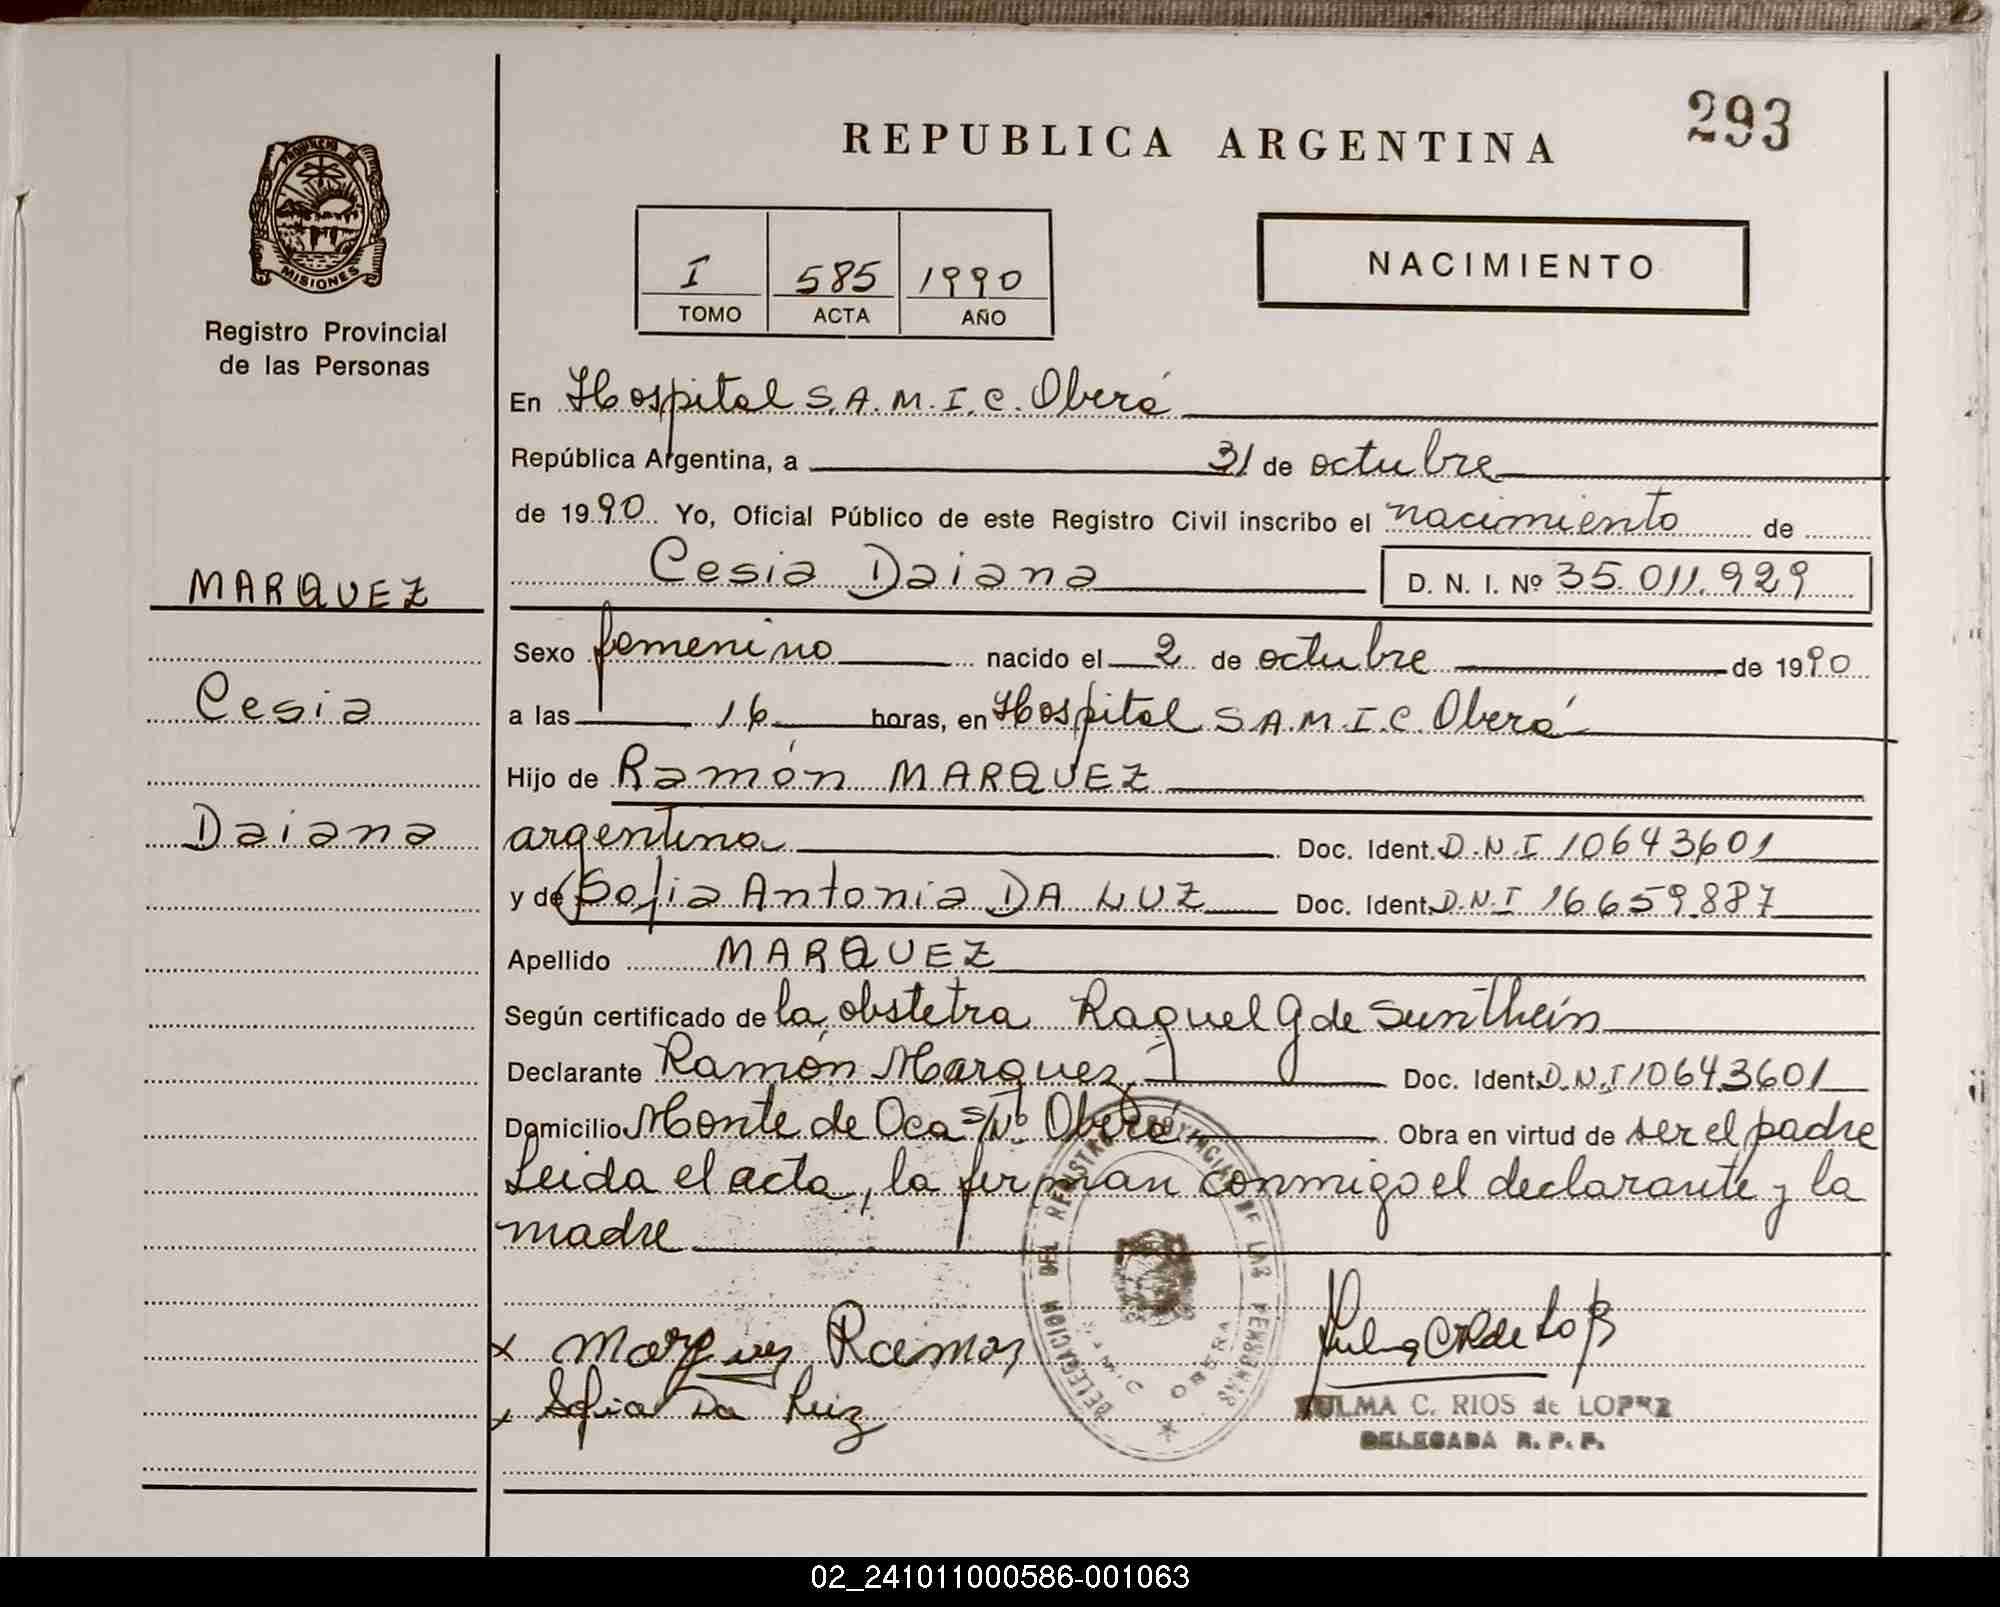 293
REPUBLICA ARGENTINA
PROVINCIA DE
MISIONES
Registro Provincial
de las Personas
I 585 1990
TOMO ACTA AÑO
NACIMIENTO
En Hospital S.A.M.I.C. Oberá
República Argentina, a 31 de octubre
de 1990 Yo, Oficial Público de este Registro Civil inscribo el nacimiento de
Cesia Daiana D. N. I. Nº 35.011.929
MARQUEZ
Cesia
Daiana
Sexo femenino nacido el 2 de octubre de 1990
a las 16 horas, en Hospital S.A.M.I.C. Oberá
Hijo de Ramón MARQUEZ
argentino Doc. Ident. D.N.I 10643601
y de Sofia Antonia DA LUZ Doc. Ident. D.N.I 16659.887
Apellido MARQUEZ
Según certificado de la obstetra Raquel G de Sunthein
Declarante Ramón Marquez Doc. Ident. D.N.I 10643601
Domicilio Monte de Oca S/Nº Oberá Obra en virtud de ser el padre
Leida el acta, la firman conmigo el declarante y la
madre
x Marques Ramon
x Sofia Da Luiz
DELEGACION DEL REGISTRO PROVINCIAL DE LAS PERSONAS
SAMIC OBERA
ZULMA C. RIOS de LOPEZ
DELEGADA R. P. P.
02_241011000586-001063